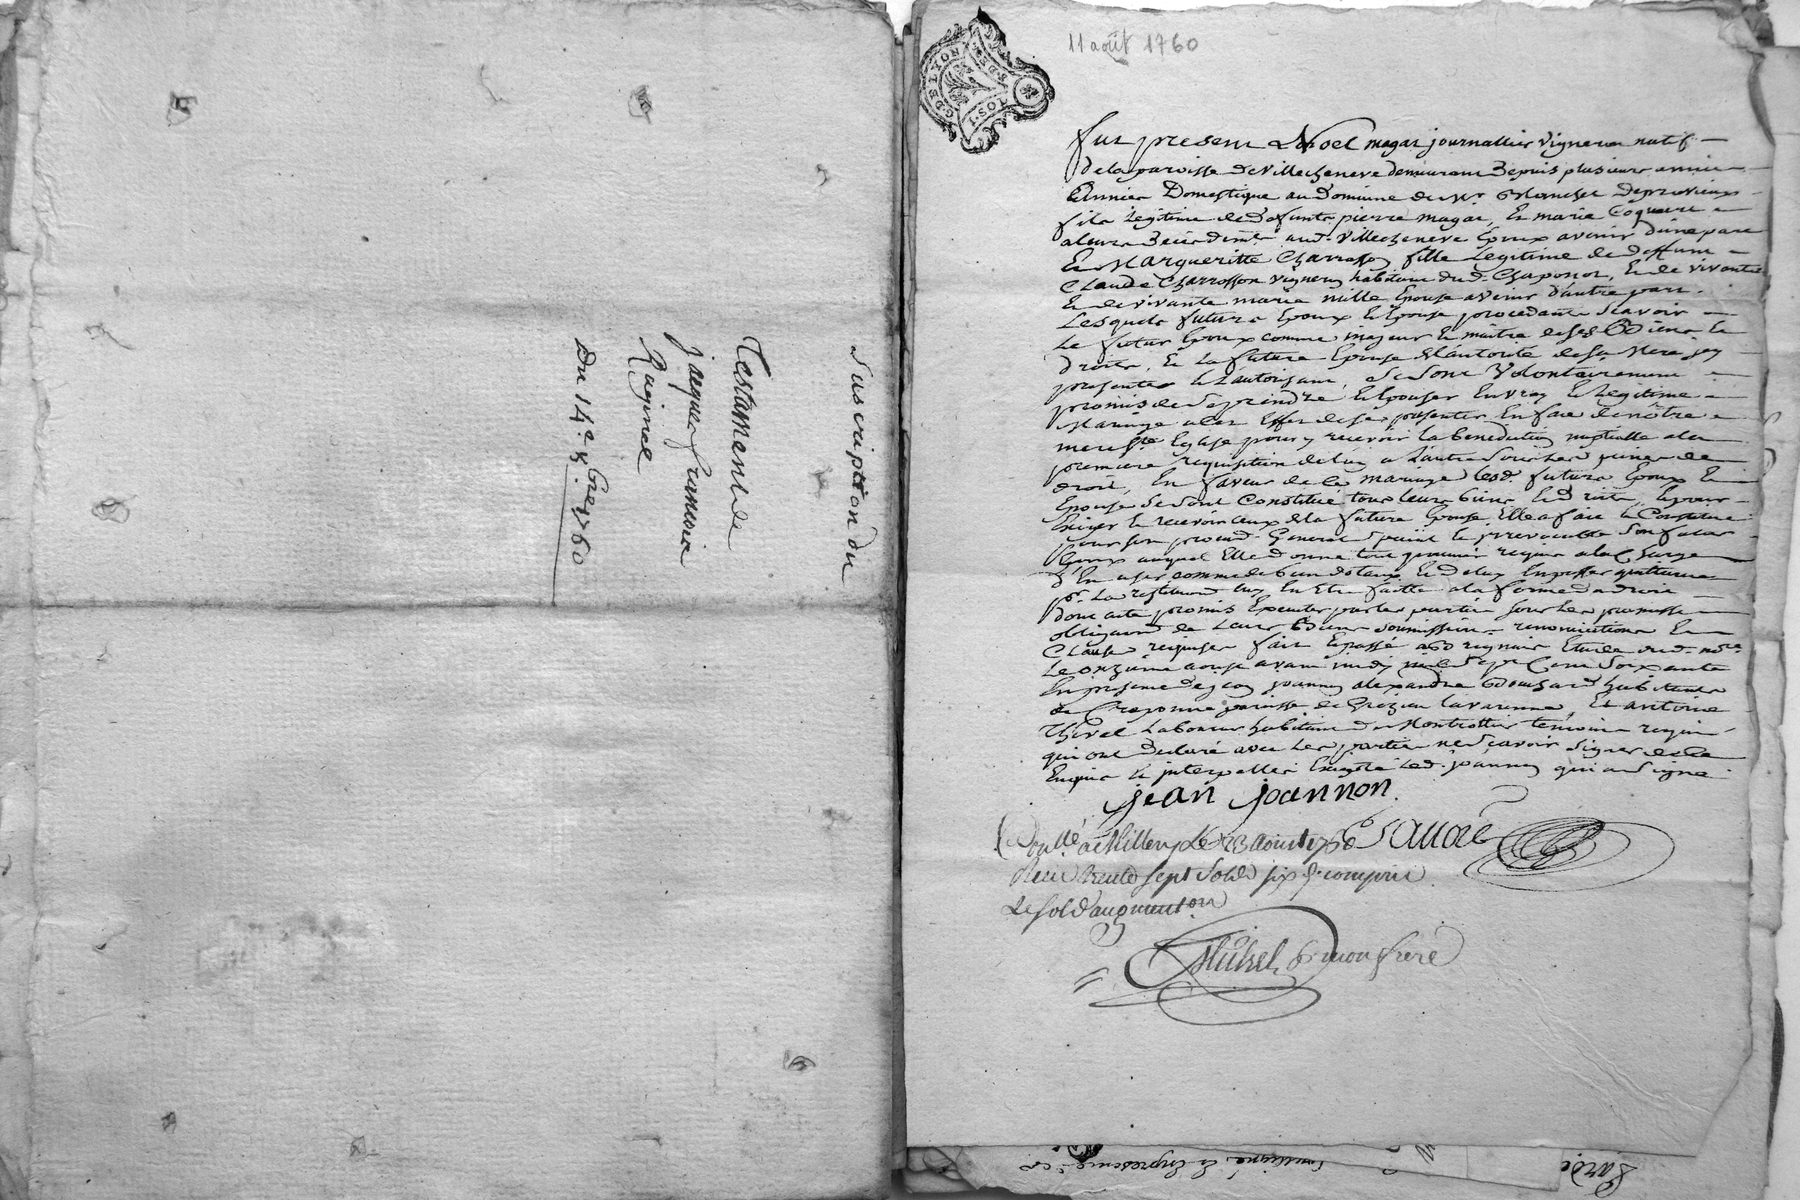 Suscription du
Testament de
jacques francois
Raginel
Du 14.e 8.bre 1760
11 août 1760
G DE LYON
fut present Noel magat journallier vigneron natif
de la paroisse de villecheneve demeurant depuis plusieurs
années Domestique au domaine du sr
fils legitime de defunts pierre magat, et marie Coquard
a leurs vivant aud. villecheneve Epoux avenir d'une part
Et Margueritte Charrosson fille Legitime de deffunt
Claude Charrosson vigneron habitant dud. Chaponot, et de vivante
Et de vivante marie mille Epouse avenir d'autre part.
Lesquels futurs Epoux et Epouse procedants scavoir
Le futur Epoux comme majeur et maitre de ses Biens et
Droits, Et La future Epouse de l'autorité de sa Mere icy
presente et L'autorisant, se sont Volontairement
promis de se prendre et Epouser en vray et Legitime
Mariage a cet Effet de se presenter En face de nôtre
mere ste Eglise pour y recevoir la benediction nuptialle a la
premiere requisition de l'un a l'autre sous les peines de
droit, En faveur de ce mariage lesd. futurs Epoux et
Epouse se sont Constitué tous leurs biens et droits, et pour
Exiger et recevoir ceux de la future Epouse Elle a fait et Constitué
pour son procur. General special et irrevocable son futur
Epoux auquel Elle donne tout pouvoir requis a la Charge
d'En user comme de bien dotaux et d'en passer quittances
pr. La restitution En Etre faitte a la forme du droit
dont acte promis Executer par les parties sous les promesses
obligations de Leurs Biens soumissions renonciations et
Clauses requises fait et passé a Brignais Etude dud. nore.
Le onzieme aoust avant midy mil sept Cent soixante
En presence de jean joannon alexandre Bouchard habitants
de Craponne paroisse de Grezieu la varenne, et antoine
Thivel Laboureur habitant de Montrottier temoins requis
qui ont declaré avec Les parties ne sçavoir signer de ce
Enquis et interpellés Excepté Led. joannon qui a signé
jean joannon
Conllé a Millery Le 23 aoust 1760
Reçu trente sept sols six d. compris
Le sol d'augmenton
Michel